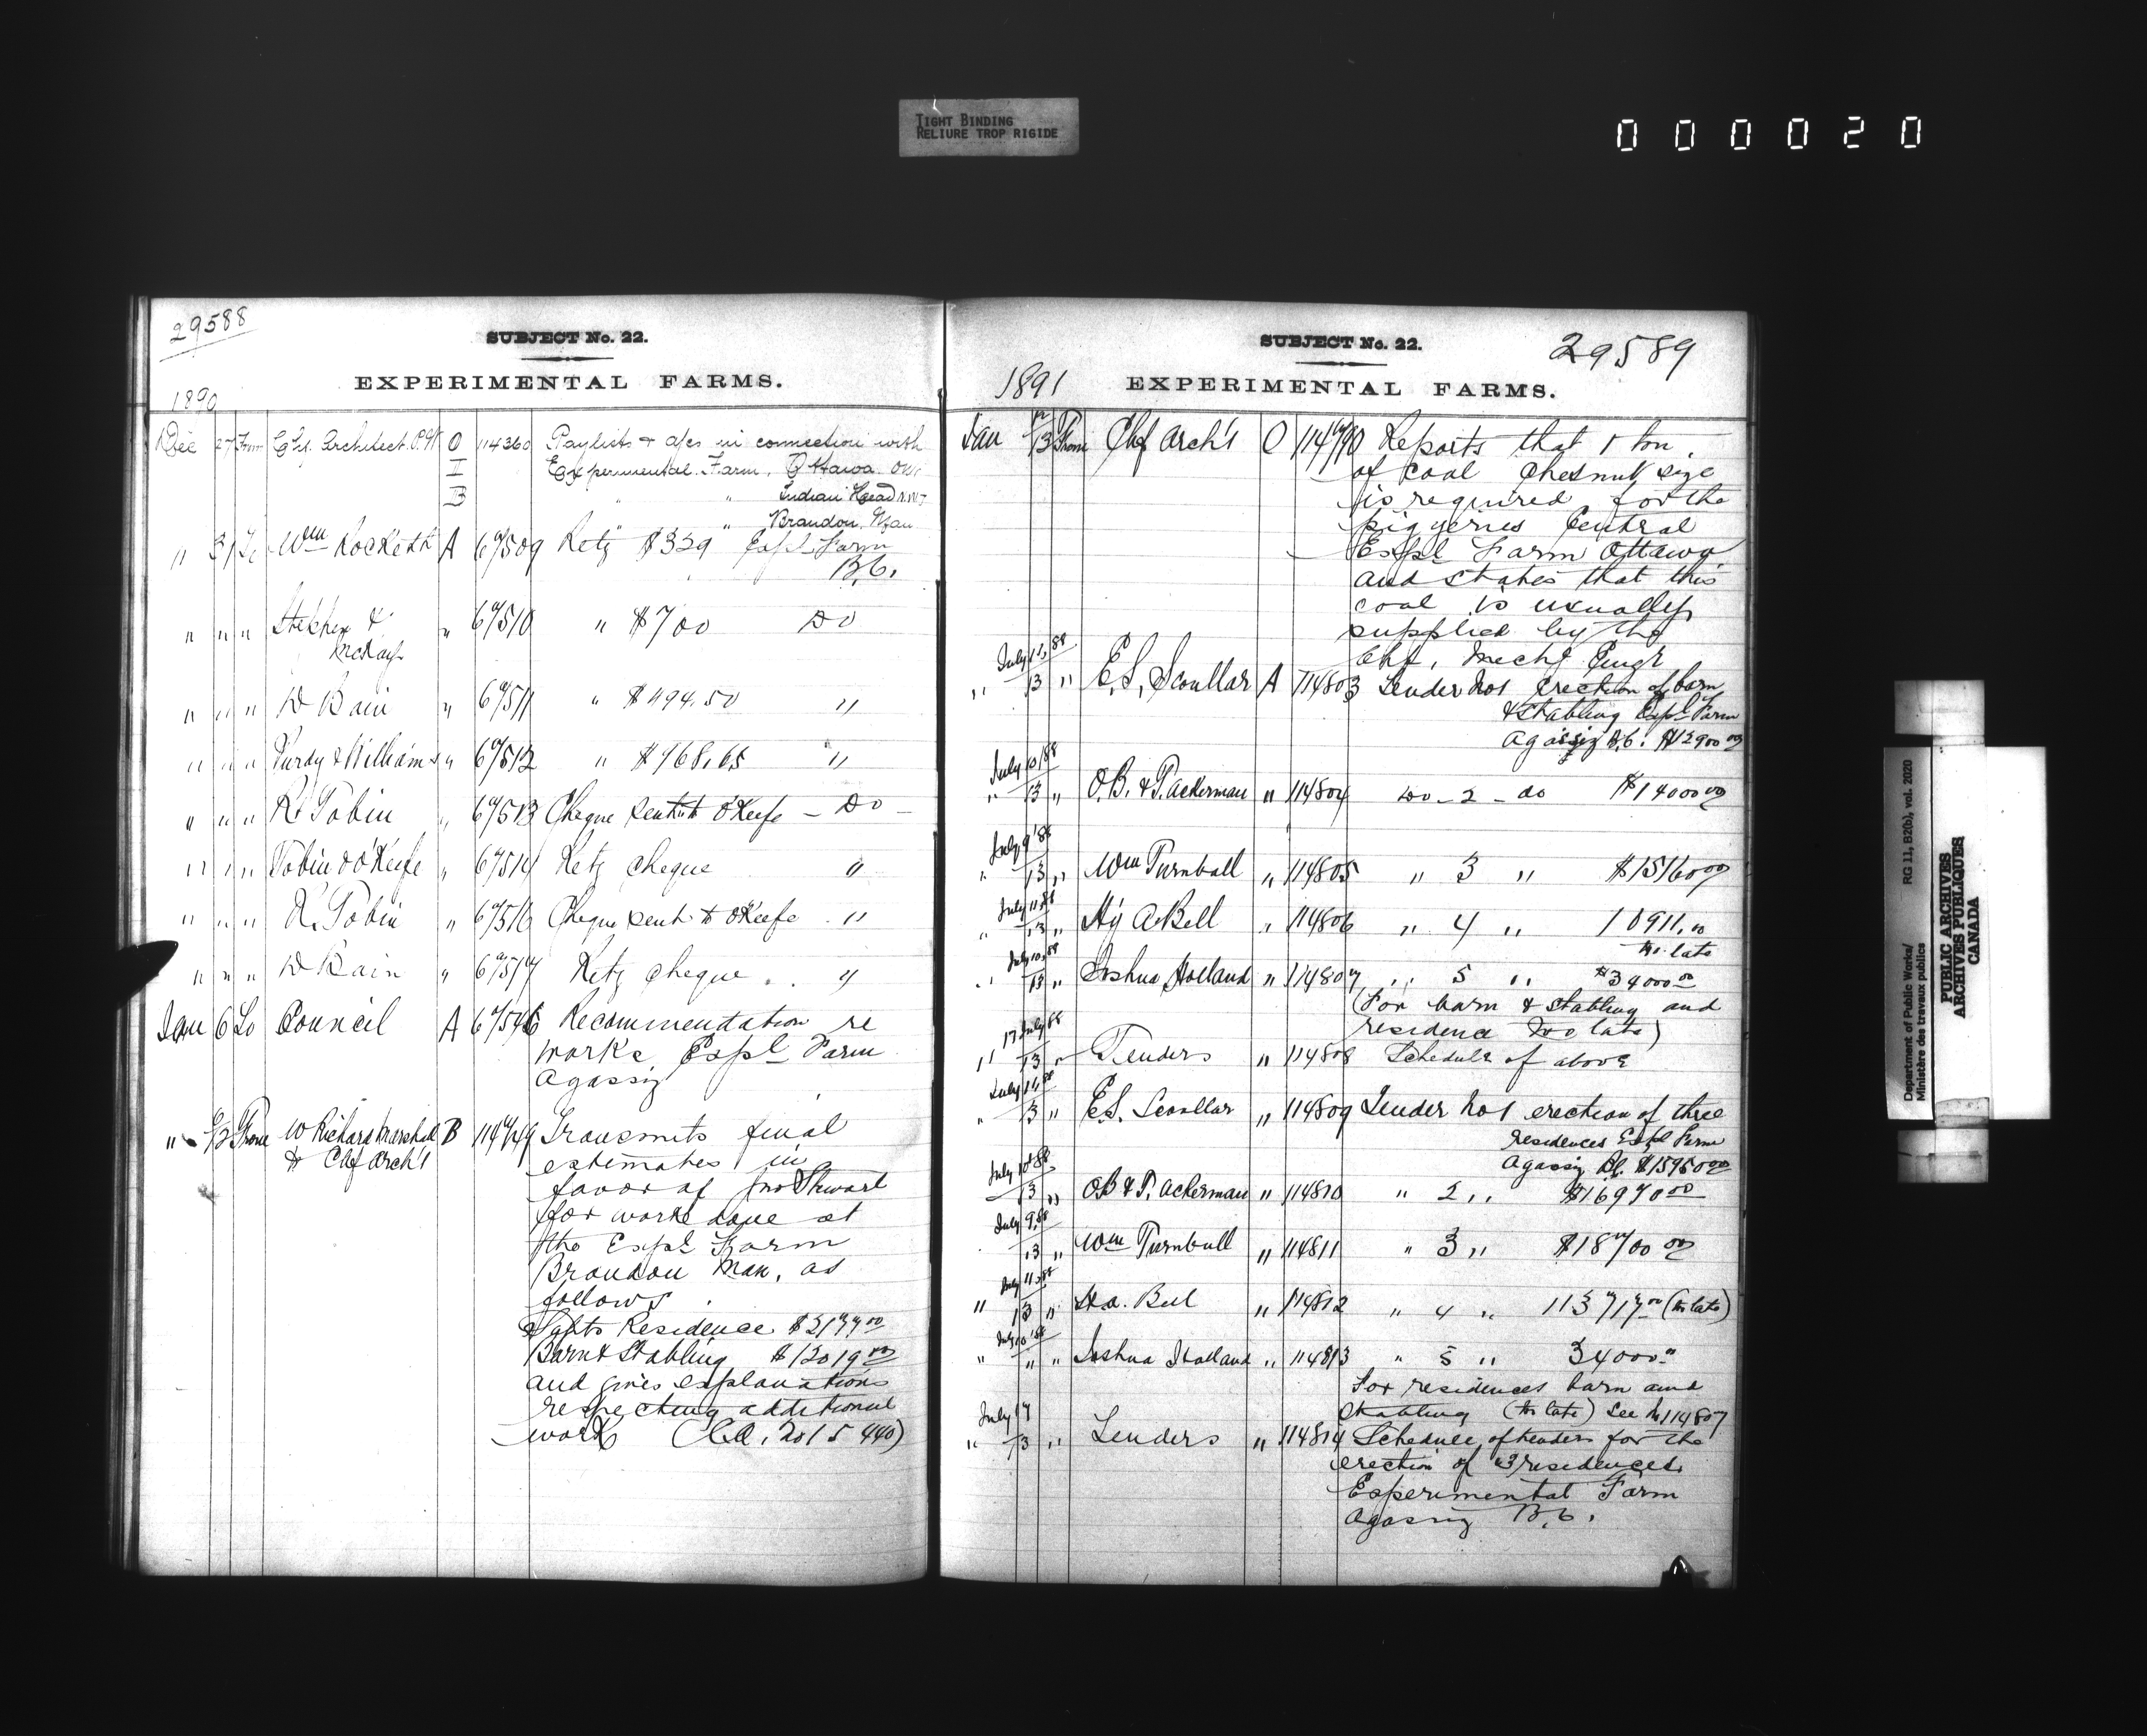 TIGHT BINDING
RELIURE TROP RIGIDE
000020
29588
SUBJECT No. 22.
EXPERIMENTAL FARMS.
1890
Dec 27 From Chf. Architect P.W O 114360 Paylists & a/cs in connection with
Experimental Farm, Ottawa Ont
" " Indian Head N.W.T
" " Brandon, Man
" 31 To Wm Rockett A 67509 Retg $339 Expl Farm
B.C.
" " " Stephen & 67510 " $700 Do
McKay
" " " D Bain " 67511 " $494.50 "
" " " Purdy & Williams " 67512 " $468.65 "
" " " R Tobin " 67513 Cheque sent to O'Keefe - Do -
" " " Tobin & O'Keefe " 67514 Retg cheque "
" " " R. Tobin " 67516 Cheque sent to O'Keefe "
" " " D Bain " 67517 Retg cheque "
Jan 6 To Council A 67546 Recommendation re
works Expl Farm
Agassiz
" From W Richard Marshall B 114749 Transmits final
& Chf Archt estimates in
favor of Jno Stewart
for works done at
the Expl Farm
Brandon Man, as
follows
Supts Residence
Barn & Stabling $12019 00
and gives explanations
respecting additional
work
SUBJECT No. 22.
29589
1891
EXPERIMENTAL FARMS.
Jan 13 From Chf Arch't O 114790 Reports that 1 ton
of coal Chesnut size
is required for the
piggeries Central
Expl Farm Ottawa
and states that this
coal is usually
supplied by the
Chf, Mechl Engr
July 11, 88
" 13 " E.S. Scoullar A 114803 Tender No 1 Erection of barn
& stabling Expl Farm
Agassiz B.C. $12900 00
July 10/88
" 13 " O.B. & T. Ackerman " 114804 Do - 2 - do $14000 00
July 9 '88
" 13 " Wm Turnbull " 114805 " 3 " $15160 00
July 11, 88
" 13 " Hy A. Bell " 114806 " 4 " 10911.00
too late
July 10, 88
" 13 " Joshua Holland " 114807 " 5 " $34000 00
(For barn & stabling and
residence too late)
17 July 88
" 13 " Tenders " 114808 Schedule of above
July 11, 88
" 13 " E.S. Scoullar " 114809 Tender No 1 erection of three
residences Expl Farm
Agassiz BC. $15950 00
July 10 88
13 " OB & T. Ackerman " 114810 " 2 " $16970 00
July 9, 88
13 " Wm Turnbull " 114811 " 3 " $18700 00
July 11, 88
" 13 " H a. Bell " 114812 " 4 " (too late)
July 10 '88
" " " Joshua Holland " 114813 " 5 " 34000 00
For residences barn and
stabling (too late) See No 114807
July 17
" 13 " Tenders " 114814 Schedule of tenders for the
erection of 3 residences
Experimental Farm
Agassiz B.C.
Department of Public Works/ RG 11, B2(b), vol. 2020
Ministère des travaux publics
PUBLIC ARCHIVES
ARCHIVES PUBLIQUES
CANADA